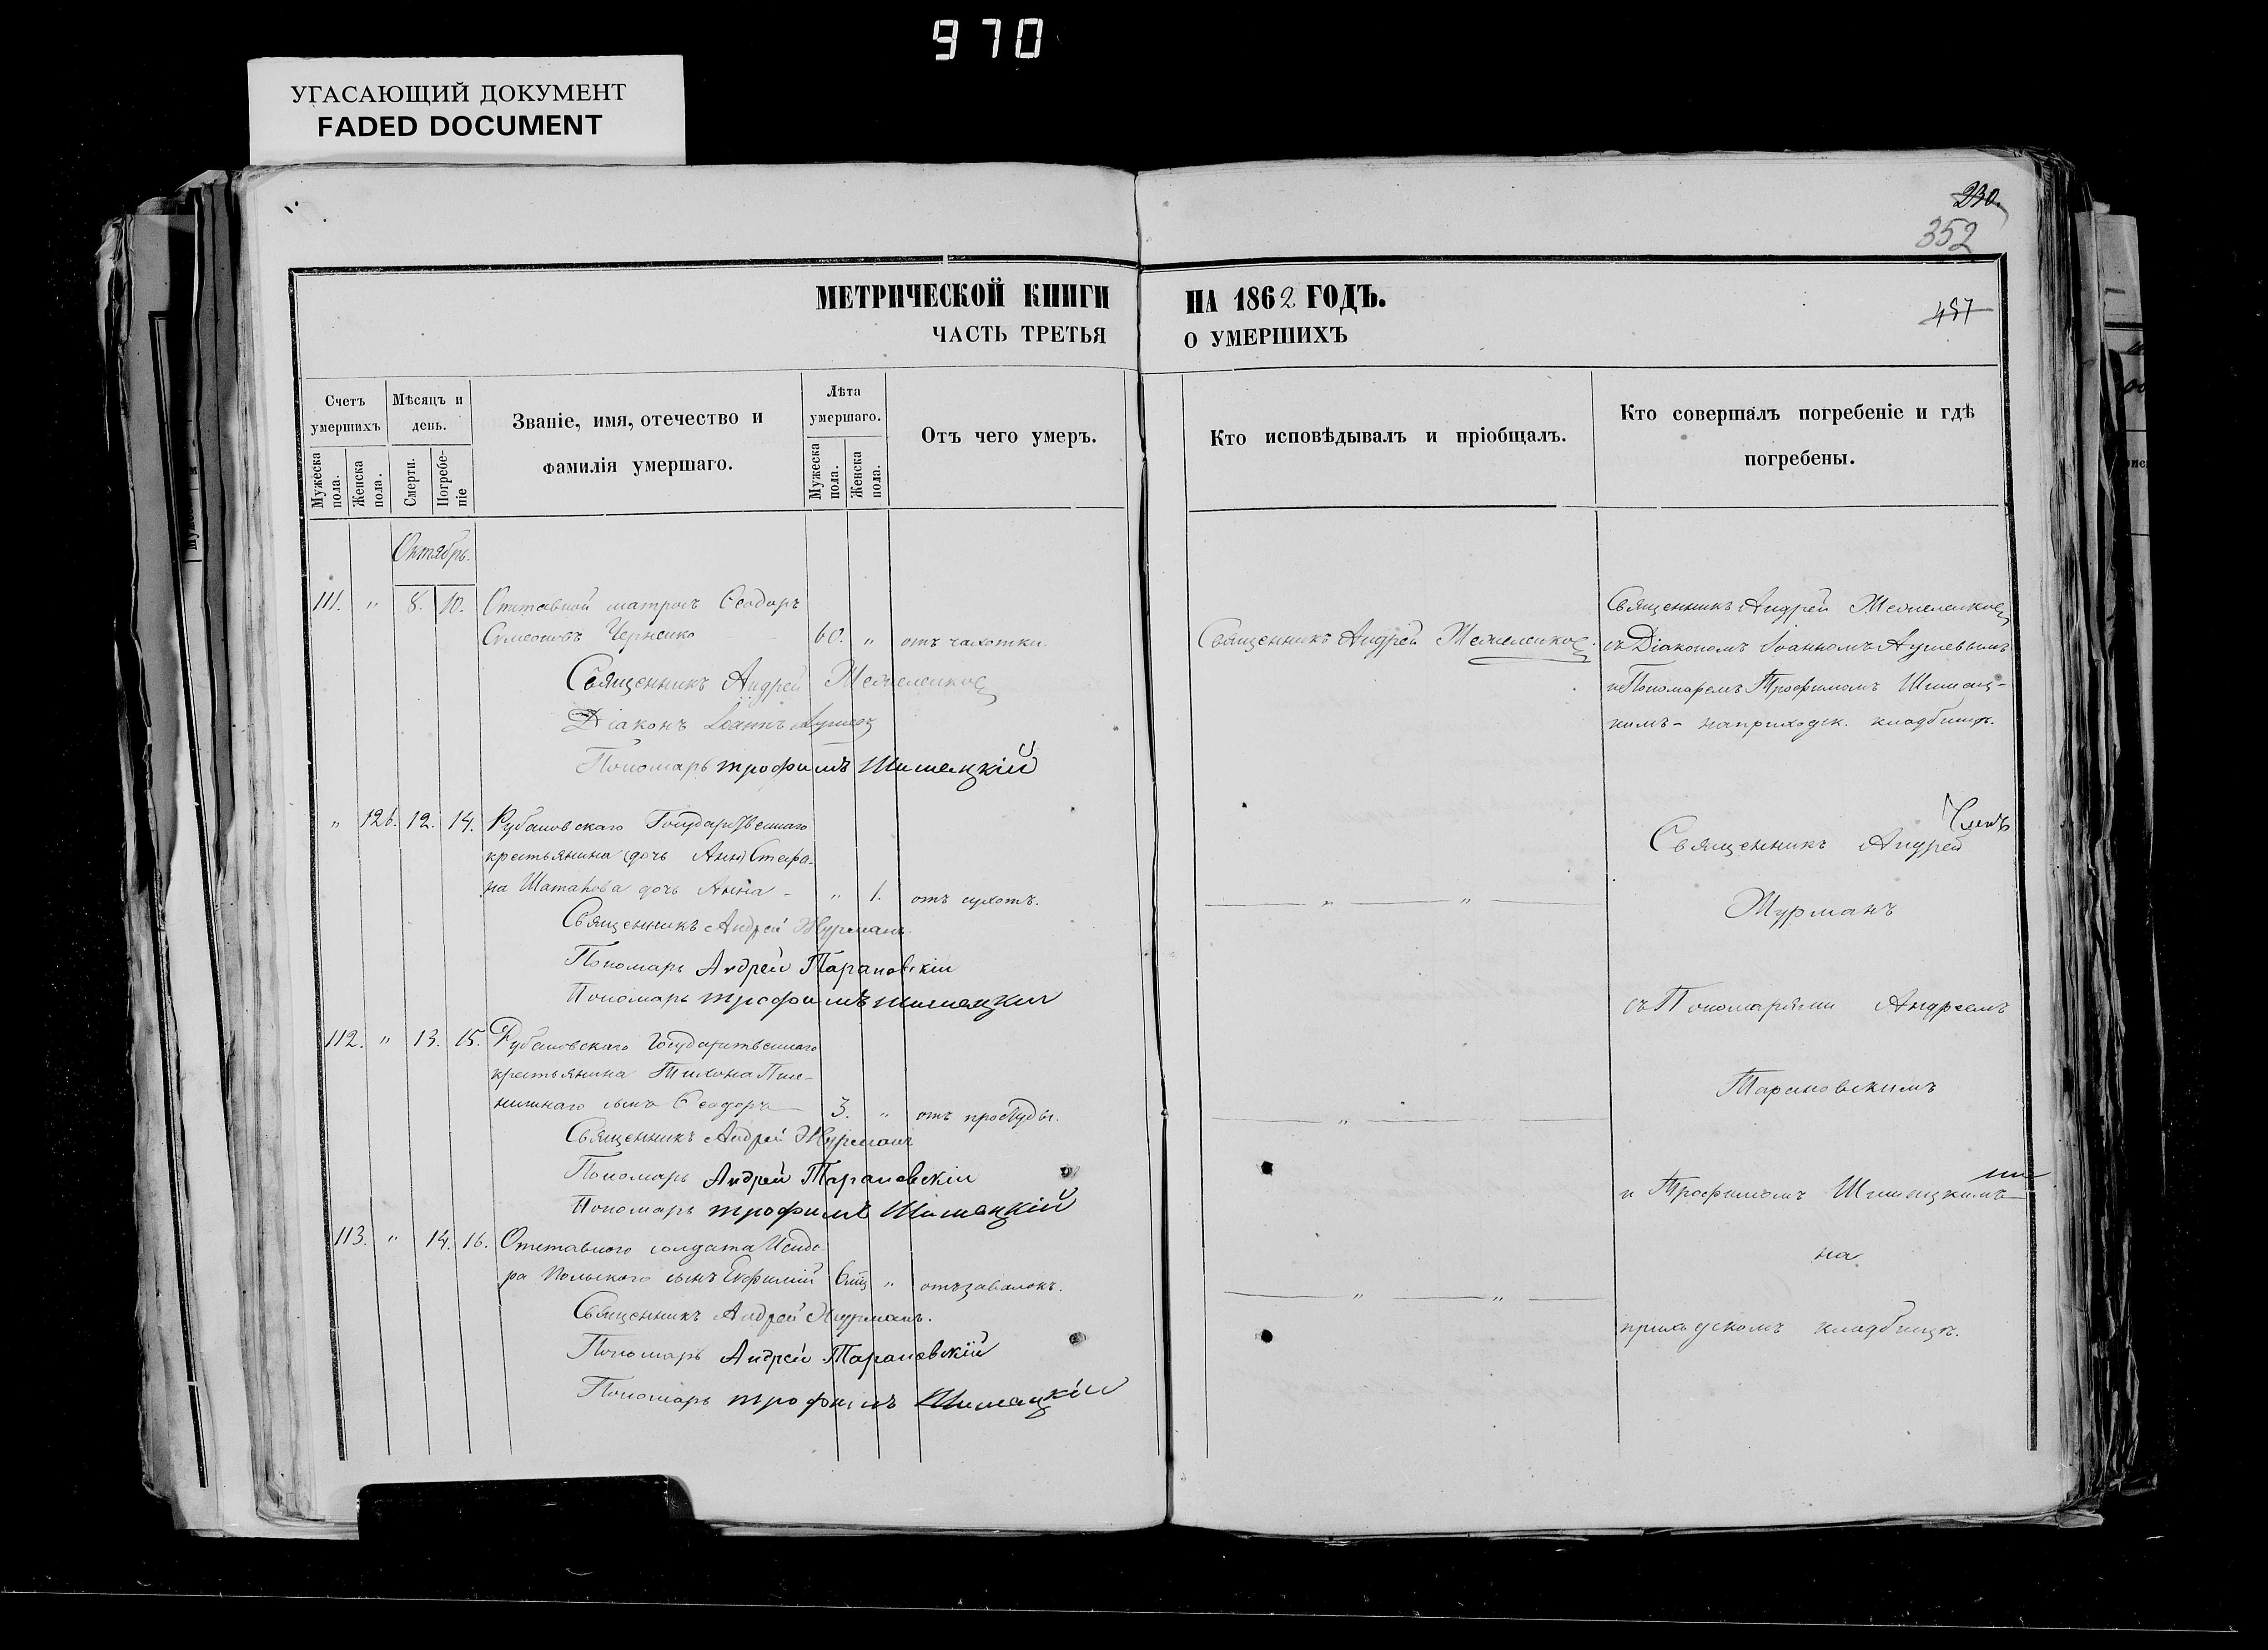 970
УГАСАЮЩИЙ ДОКУМЕНТ
FADED DOCUMENT
230.
352
457
МЕТРИЧЕСКОЙ КНИГИ НА 1862 ГОДЪ.
ЧАСТЬ ТРЕТЬЯ О УМЕРШИХЪ
Счетъ умершихъ
Мужеска пола.
Женска пола.
Мѣсяцъ и день.
Смерти.
Погребеніе
Званіе, имя, отечество и
фамилія умершаго.
Лѣта умершаго.
Мужеска пола.
Женска пола.
Отъ чего умеръ.
Кто исповѣдывалъ и пріобщалъ.
Кто совершалъ погребеніе и гдѣ
погребены.
Октябрь.
111. " 8. 10. Отставной матросъ Ѳеодоръ
Симеоновъ Черненко 60. " отъ чахотки.
Священникъ Андрей
Діаконъ Іоаннъ
Пономарь трофимъ Шишацкій
Священникъ Андрей
Священникъ Андрей
съ Діакономъ Іоанномъ
и Пономаремъ Трофимомъ Шишац-
кимъ - на приходск. кладбищѣ.
" 126. 12. 14. Рубановскаго Государственнаго
крестьянина дочь Стефа-
на дочь Анна - " 1. отъ сухотъ.
Священникъ Андрей Журманъ.
Пономарь Андрей Тарановскій
Пономарь трофимъ шишацкій
112. " 13. 15. Рубановскаго Государственнаго
крестьянина Тихона Пше-
ничнаго сынъ Ѳеодоръ 3. " отъ простуды.
Священникъ Андрей Журманъ
Пономарь Андрей Тарановскій
Пономарь трофимъ Шишацкій
113. " 14. 16. Отставного солдата Исидо-
ра Польского сынъ Евфимій 6 мц " отъ завалокъ.
Священникъ Андрей Журманъ.
Пономарь Андрей Тарановскій
Пономарь трофимъ Шишацкій
Священникъ Андрей
Журманъ
съ Пономарями Андреемъ
Тарановскимъ
и Трофимомъ Шишацкимъ
на
приходскомъ кладбищѣ.